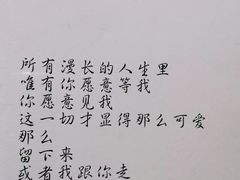 所有漫长的人生里
唯有你愿意等我
你愿意见我
这一切才显得那么可爱
那么
留下来
或者我跟你走